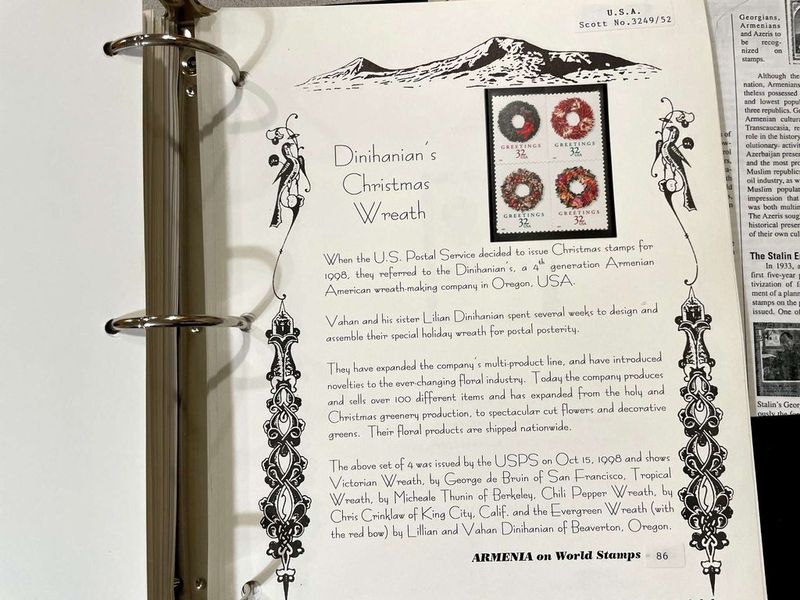 U.S.A.
Scott No.3249/52
Dinihanian's
Christmas
Wreath
GREETINGS
32
GREETINGS
32
GREETINGS
32
GREETINGS
32
When the U.S. Postal Service decided to issue Christmas stamps for
1998, they referred to the Dinihanian's, a 4th generation Armenian
American wreath-making company in Oregon, USA.
Vahan and his sister Lilian Dinihanian spent several weeks to design and
assemble their special holiday wreath for postal posterity.
They have expanded the company's multi-product line, and have introduced
novelties to the ever-changing floral industry. Today the company produces
and sells over 100 different items and has expanded from the holy and
Christmas greenery production, to spectacular cut flowers and decorative
greens. Their floral products are shipped nationwide.
The above set of 4 was issued by the USPS on Oct 15, 1998 and shows
Victorian Wreath, by George de Bruin of San Francisco, Tropical
Wreath, by Micheale Thunin of Berkeley, Chili Pepper Wreath, by
Chris Crinklaw of King City, Calif. and the Evergreen Wreath (with
the red bow) by Lillian and Vahan Dinihanian of Beaverton, Oregon.
ARMENIA on World Stamps 86
Georgians,
Armenians
and Azeris to
be recog-
nized on
stamps.
Although the
nation, Armenians
theless possessed
and lowest popul
three republics. Ge
Armenian cultura
Transcaucasia, ro
role in the history
olutionary- activit
Azerbaijan presen
and the most pro
Muslim republic
oil industry, as w
Muslim popula
impression that
was both multin
The Azeris soug
historical presen
of their own cul
The Stalin E
In 1933, a
first five-year p
tivization of f
ment of a plann
stamps on the p
issued. One of
Stalin's Geor
ously the for